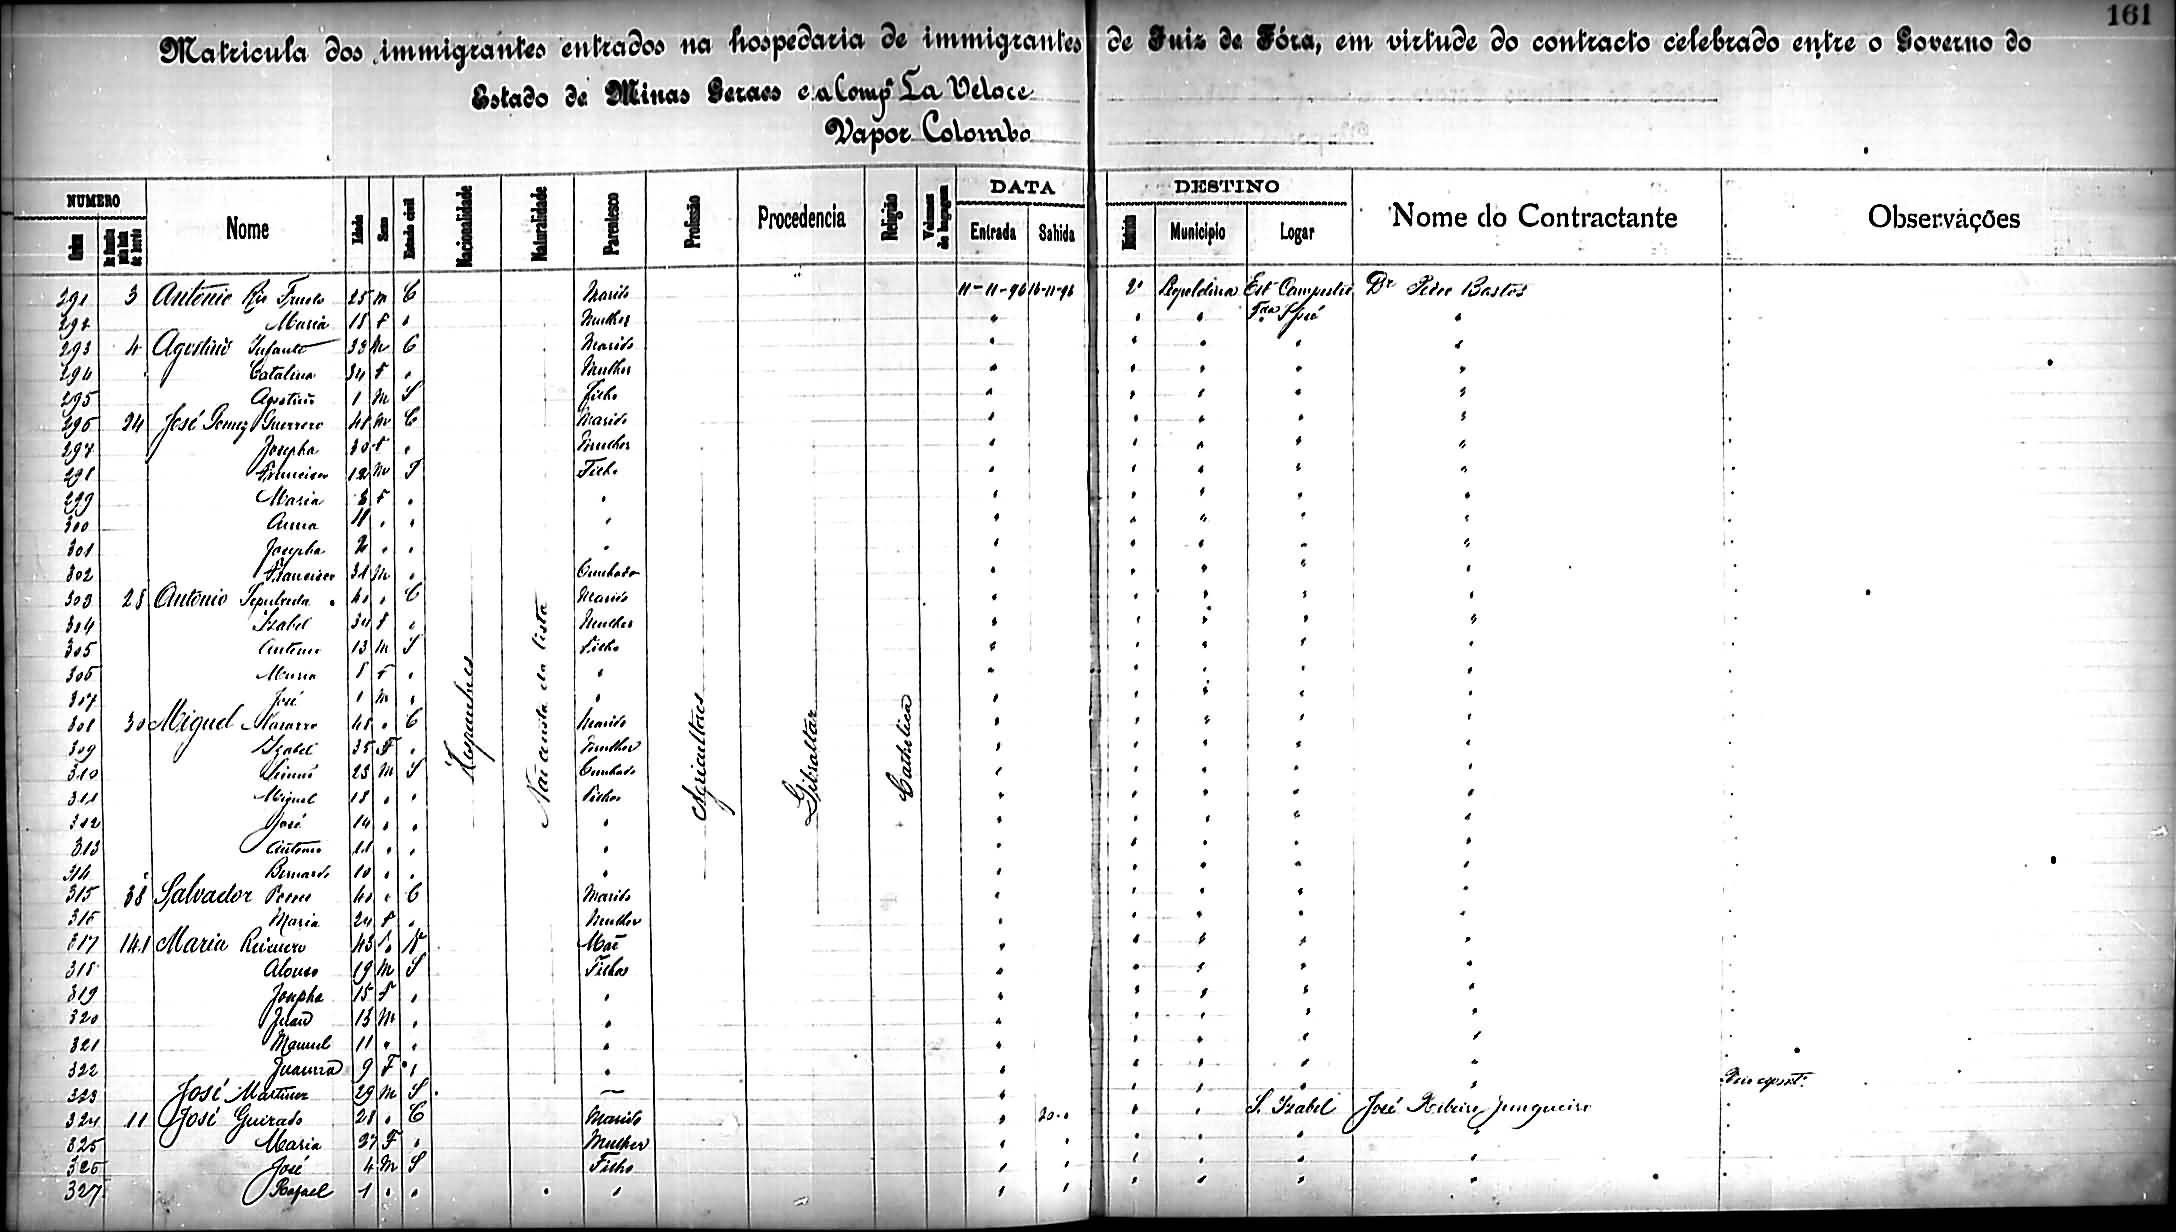 161
Matricula dos immigrantes entrados na hospedaria de immigrantes de Juiz de Fóra, em virtude do contracto celebrado entre o Governo do
Estado de Minas Geraes e a Comp.ª La Veloce
Vapor Colombo
NUMERO DATA DESTINO
Ordem Nome Idade Sexo Estado civil Nacionalidade Naturalidade Parentesco Profissão Procedencia Religião Volumes de bagagem Entrada Sahida Municipio Logar Nome do Contractante Observações
291 3 Antonio 25 M C Marido 11-11-96 16-11-96 2º Leopoldina Est Campestre Dr Bastos
292 Maria 18 F " Mulher " " " Fda S José "
293 4 Agostinho Infante 33 M C Marido " " " " "
294 Catalina 34 F " Mulher " " " " "
295 Agostinho 1 M S Filho " " " " "
296 24 José Gomez Guerrero 48 M C Marido " " " " "
297 Josepha 30 F " Mulher " " " " "
298 Francisco 12 M S Filho " " " " "
299 Maria F " " " " " " "
300 Anna 11 " " " " " " " "
301 Josepha 2 " " " " " " " "
302 Francisco 31 M " Cunhado " " " " "
303 28 Antonio Sepulveda 40 " C Marido " " " " "
304 Izabel 34 F " Mulher " " " " "
305 Antonio 13 M S Filho " " " " "
306 Maria 8 F " " " " " " "
307 José 1 M " " " " " " "
308 30 Miguel Navarro 48 " C Marido " " " " "
309 Izabel 35 F " Mulher " " " " "
310 23 M S Cunhado " " " " "
311 Miguel 18 " " Filhos " " " " "
312 José 14 " " " " " " " "
313 Antonio 11 " " " " " " " "
314 Bernardo 10 " " " " " " " "
315 38 Salvador 40 " C Marido " " " " "
316 Maria 24 F " Mulher " " " " "
317 141 Maria 43 " V Mãe " " " " "
318 Alonso 19 M S Filhos " " " " "
319 Josepha 15 F " " " " " " "
320 Juan 13 M " " " " " " "
321 Manuel 11 " " " " " " " "
322 Juanna 9 F " " " " " " "
323 José Martinez 29 M S — " " " " "
324 11 José Guirado 28 " C Marido " 20 " " " S. Izabel José Ribeiro Junqueira
325 Maria 27 F " Mulher " " " " " "
326 José 4 M S Filho " " " " " "
327 Rafael 1 " " " " " " " " "
Hespanhoes
Não consta da lista
Agricultores
Gibraltar
Catholica